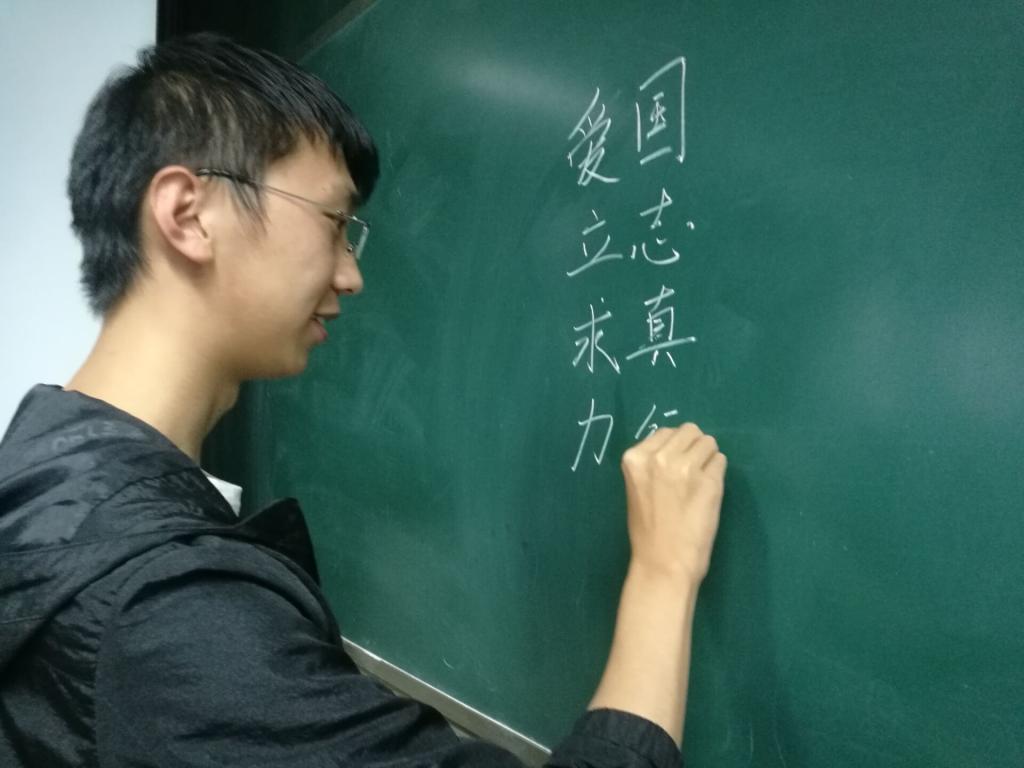 爱国
立志
求真
力行